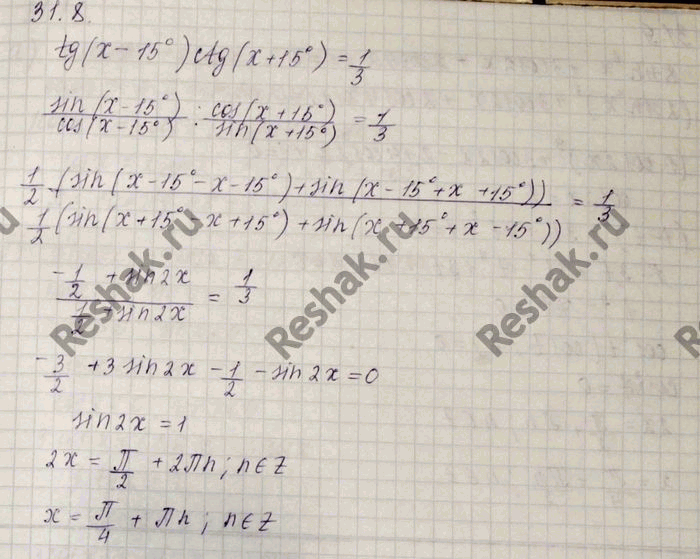 31.8.
tg(x-15°)ctg(x+15°)=1/3
sin(x-15°)/cos(x-15°) : cos(x+15°)/sin(x+15°) = 1/3
1/2·(sin(x-15°-x-15°)+sin(x-15°+x+15°)) / 1/2(sin(x+15°-x+15°)+sin(x+15°+x-15°)) = 1/3
(-1/2+sin2x)/(1/2+sin2x) = 1/3
-3/2+3sin2x-1/2-sin2x=0
sin2x=1
2x=П/2+2Пn; n∈Z
x=П/4+Пn; n∈Z
Reshak.ru
Reshak.ru
Reshak.ru
Reshak.ru